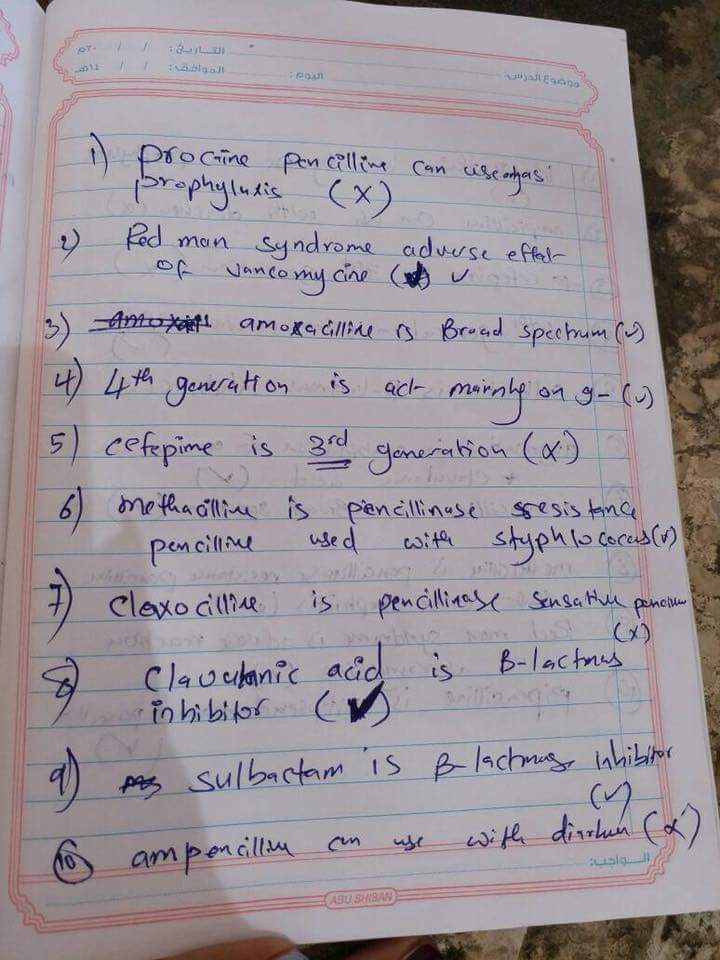 موضوع الدرس: اليوم: التاريخ: / / ٢٠م
الموافق: / / ١٤هـ
1) Procaine pencilline can use as
prophylaxis (X)
2) Red man syndrome adverse effect
of vancomycine (✓) ✓
3) amoxacilline is Broad spectrum (✓)
4) 4th generation is act mainly on g- (✓)
5) cefepime is 3rd generation (X)
6) methacilline is pencillinase resistance
pencilline used with styphlococcus (✓)
7) cloxocilline is pencillinase sensative
(X)
8) clavulanic acid is B-lactmus
inhibitor (✓)
9) sulbactam is B-lactmus inhibitor
(✓)
10) ampencilline can use with diarrhea (X)
الواجب:
ABU SHIBAN